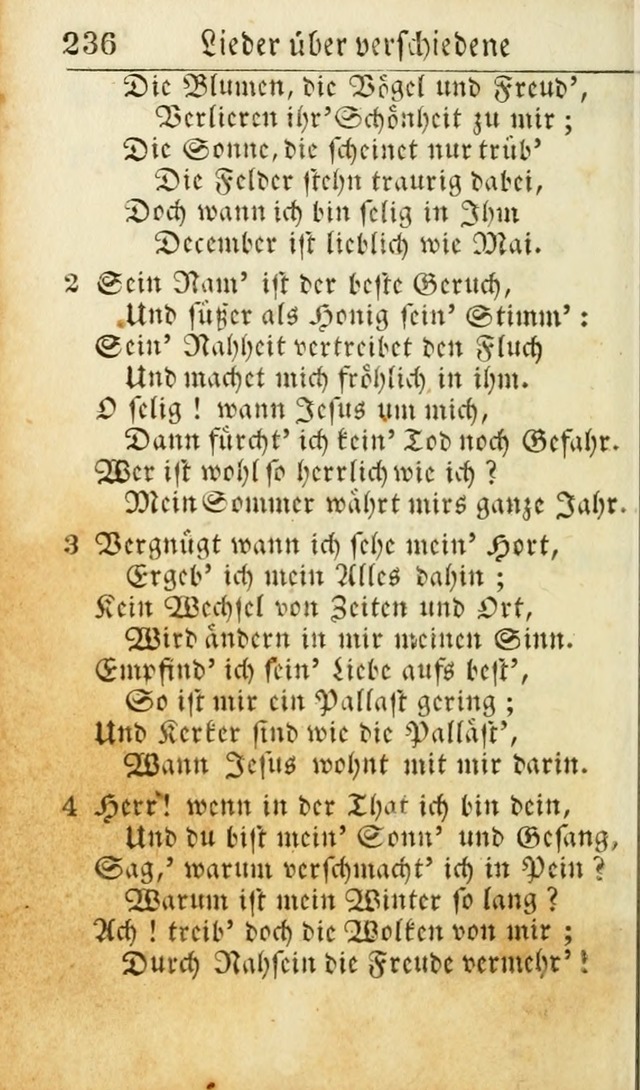 236 Lieder über verschiedene
Die Blumen, die Vögel und Freud',
Verlieren ihr' Schönheit zu mir ;
Die Sonne, die scheinet nur trüb'
Die Felder stehn traurig dabei,
Doch wann ich bin selig in Ihm
December ist lieblich wie Mai.
2 Sein Nam' ist der beste Geruch,
Und süßer als Honig sein' Stimm' :
Sein' Nahheit vertreibet den Fluch
Und machet mich fröhlich in ihm.
O selig ! wann Jesus um mich,
Dann fürcht' ich kein' Tod noch Gefahr.
Wer ist wohl so herrlich wie ich ?
Mein Sommer währt mirs ganze Jahr.
3 Vergnügt wann ich sehe mein' Hort,
Ergeb' ich mein Alles dahin ;
Kein Wechsel von Zeiten und Ort,
Wird ändern in mir meinen Sinn.
Empfind' ich sein' Liebe aufs best',
So ist mir ein Pallast gering ;
Und Kerker sind wie die Palläst',
Wann Jesus wohnt mit mir darin.
4 Herr! wenn in der That ich bin dein,
Und du bist mein' Sonn' und Gesang,
Sag,' warum verschmacht' ich in Pein ?
Warum ist mein Winter so lang ?
Ach ! treib' doch die Wolken von mir ;
Durch Nahsein die Freude vermehr' !